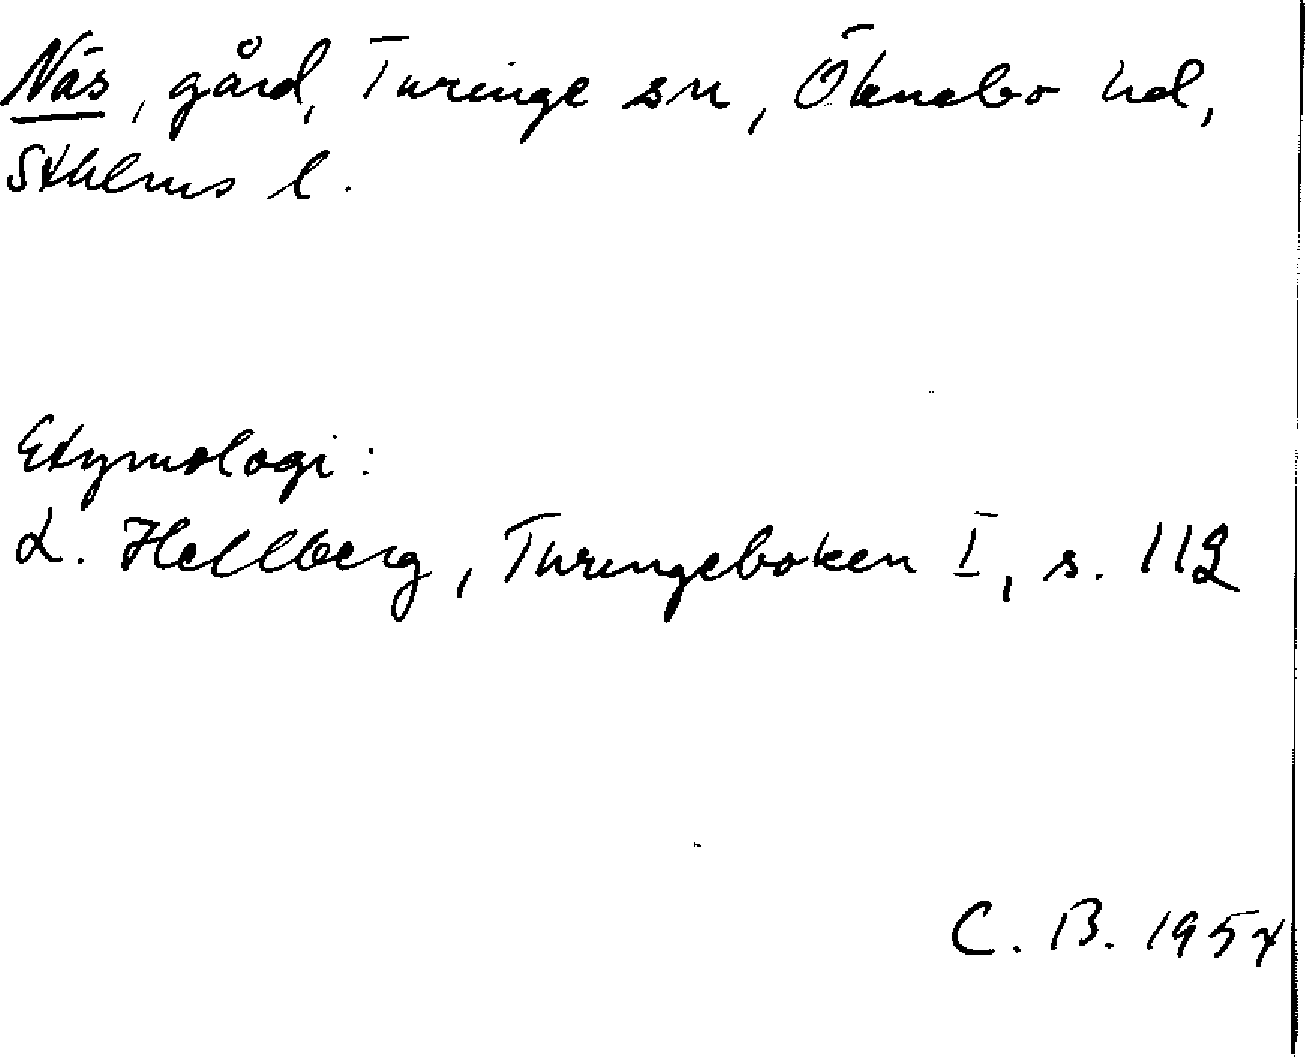 Näs, gård, Turinge sn, Öknebo hd,
Sthlms l.
Etymologi:
L. Hellberg, Turingeboken I, s. 112
C. B. 1954